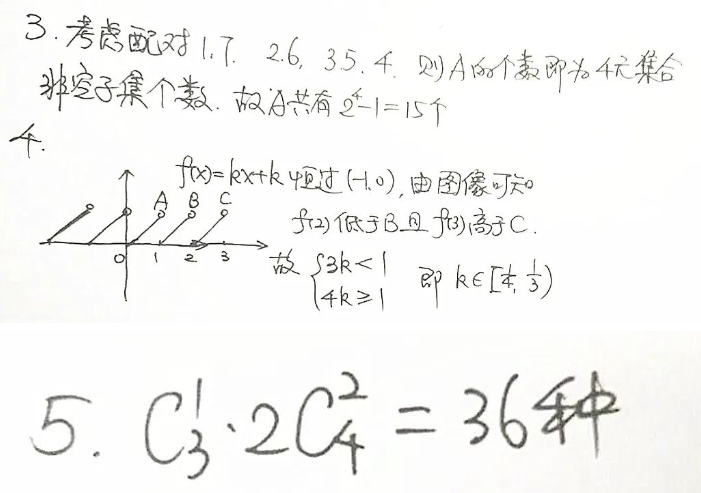 3. 考虑配对 1,7. 2,6, 3,5. 4. 则A的个数即为4元集合
非空子集个数. 故A共有 2⁴-1=15个
4.
f(x)=kx+k 恒过(-1,0), 由图像可知
A B C
f(2)低于B且f(3)高于C.
0 1 2 3
故 {3k<1 即 k∈[1/4, 1/3)
4k≥1
5. C₃¹·2C₄²=36种